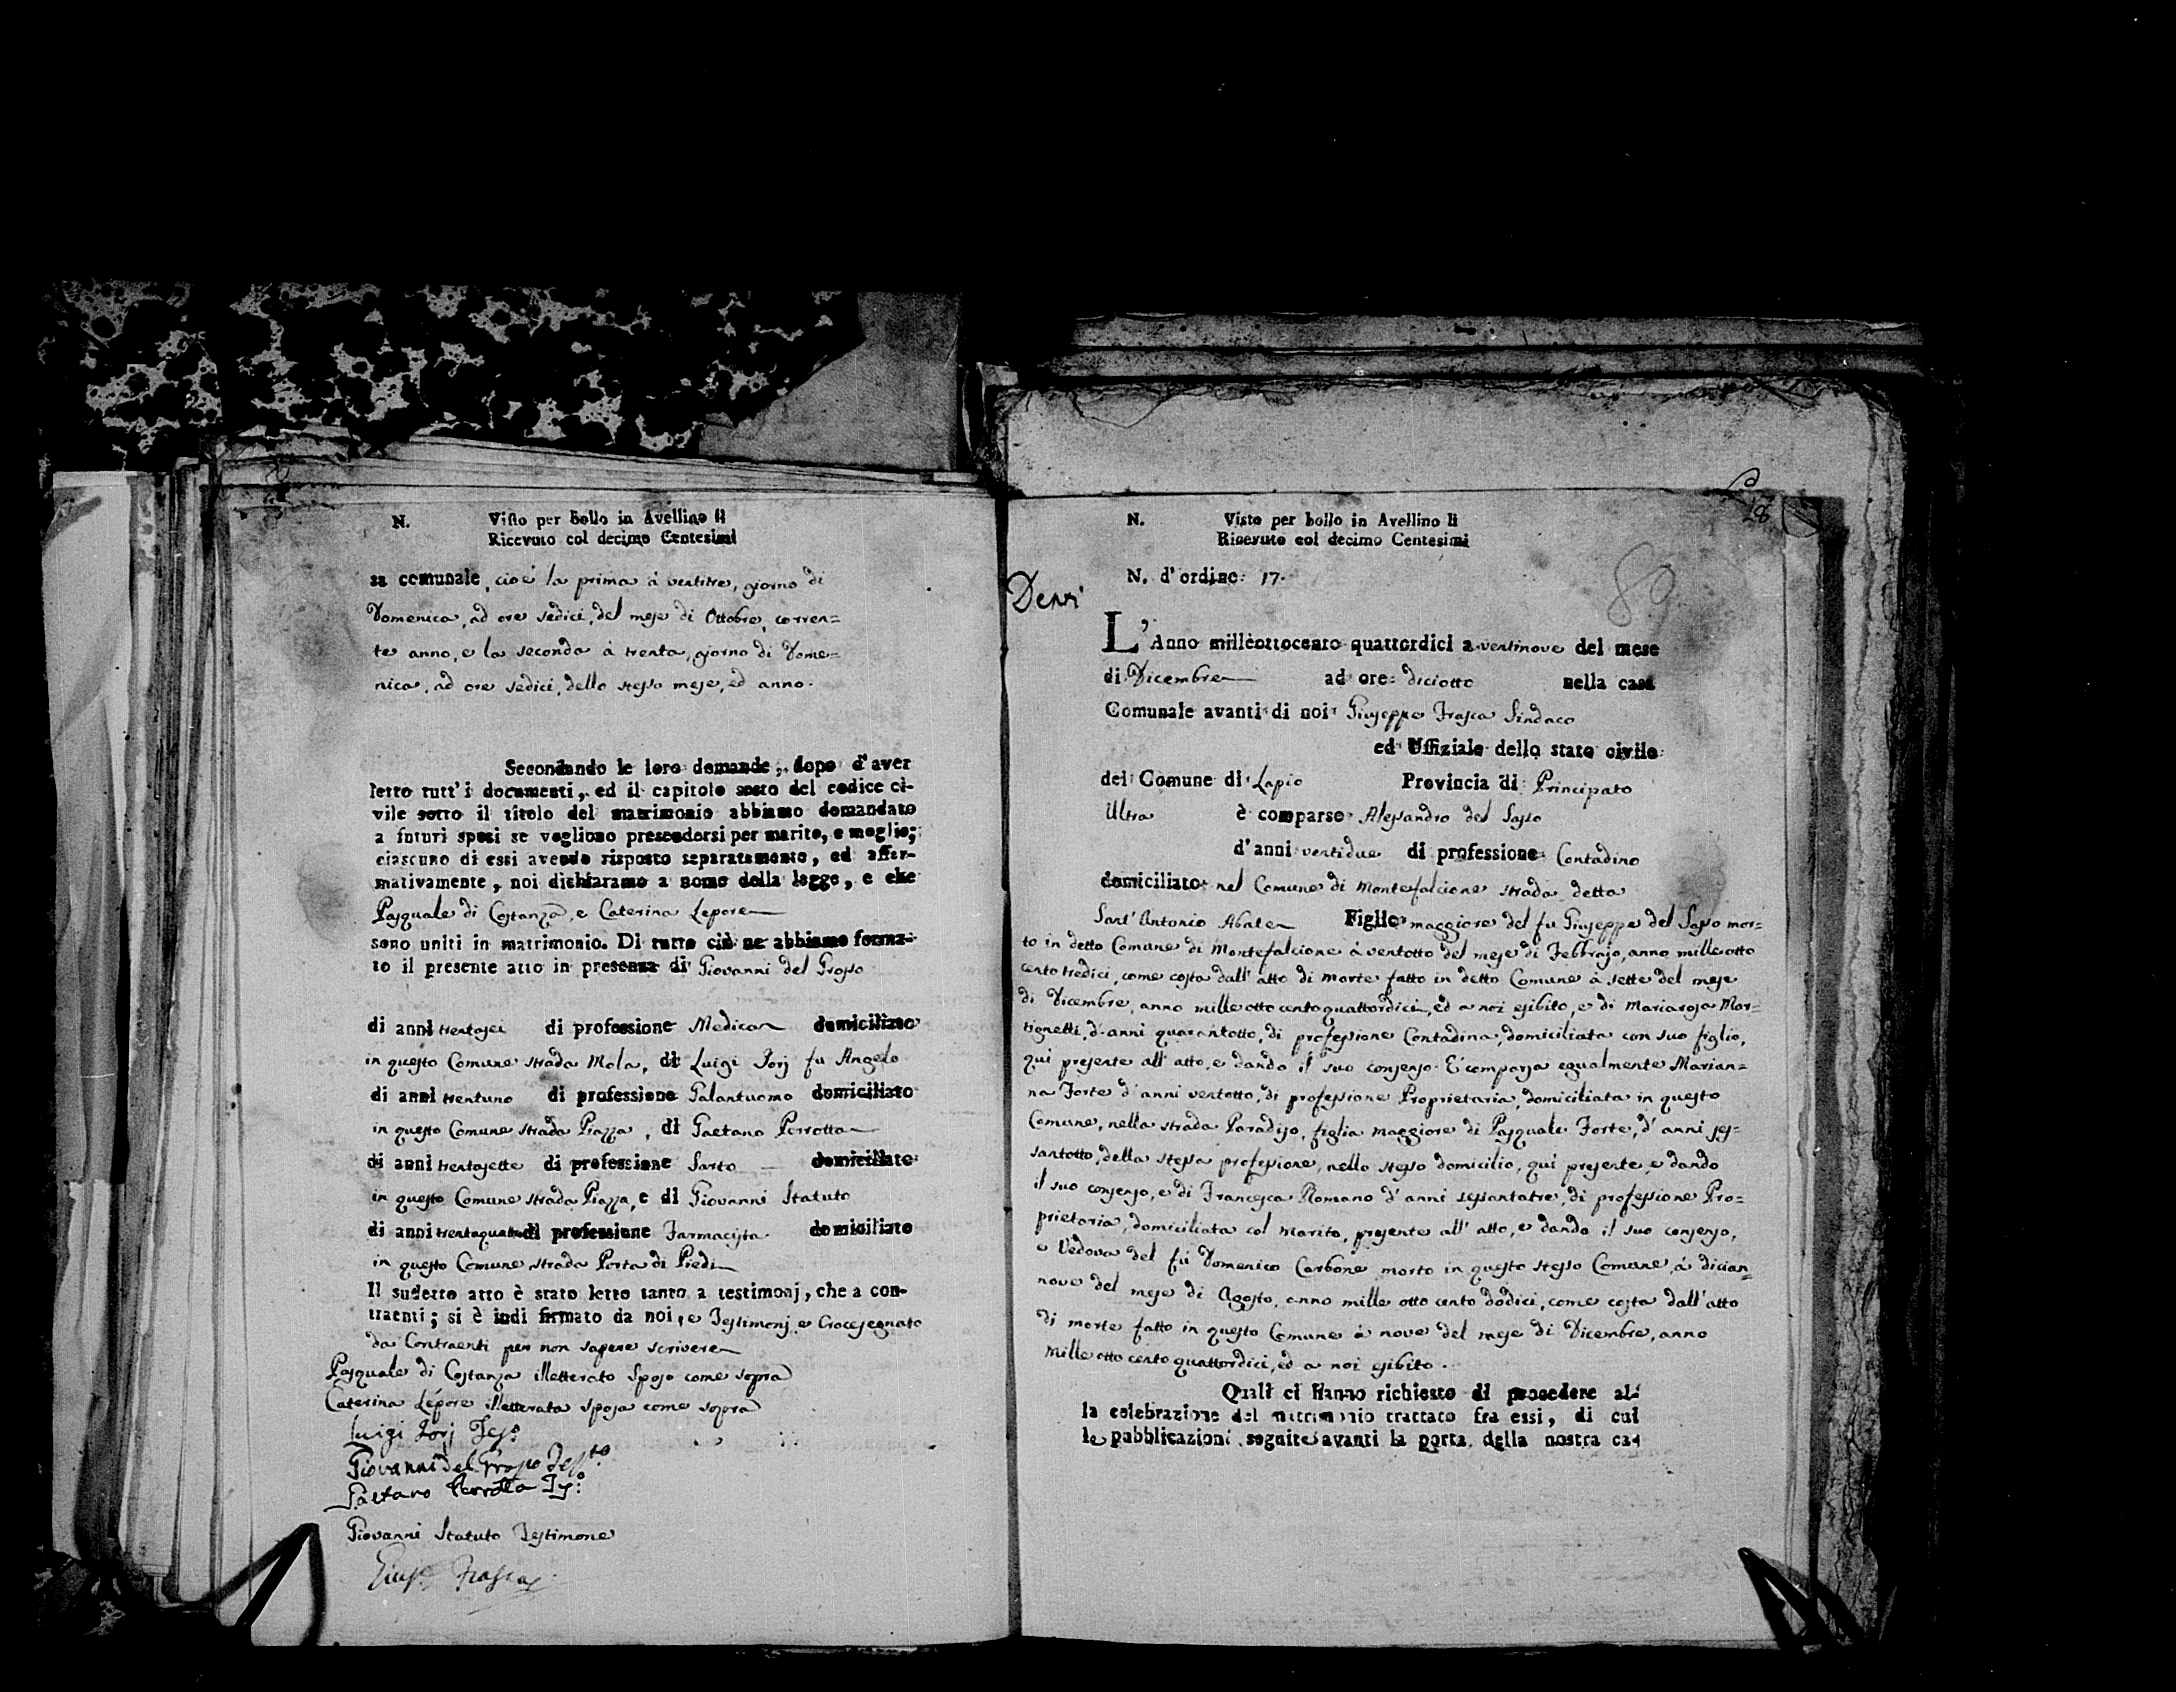 N. Visto per bollo in Avellino li
Ricevuto col decimo Centesimi
sa comunale, cioè la prima à ventitre, giorno di
Domenica, ad ore sedici, del mese di Ottobre, corren=
te anno, e la seconda à trenta, giorno di Dome=
nica, ad ore sedici, dello stesso mese, ed anno.
Secondando le loro domande, dopo d'aver
letto tutt'i documenti, ed il capitolo sesto del codice ci-
vile sotto il titolo del matrimonio abbiamo domandato
a futuri sposi se vogliono prescendersi per marito, e moglie;
ciascuno di essi avendo risposto separatamente, ed affer-
mativamente, noi dichiaramo a nome della legge, e che
Pasquale di Costanza, e Caterina Lepore
sono uniti in matrimonio. Di tutto ciò ne abbiamo forma-
to il presente atto in presenza di Giovanni del Grosso
di anni trentasei di professione Medico domiciliato
in questo Comune strada Mola, di Luigi Iorj fu Angelo
di anni trentuno di professione Galantuomo domiciliato
in questo Comune strada Piazza, di Gaetano Perrotta
di anni trentasette di professione Sarto domiciliato
in questo Comune strada Piazza, e di Giovanni Statuto
di anni trentaquattro di professione Farmacista domiciliato
in questo Comune strada Porta di Piedi
Il sudetto atto è stato letto tanto a testimonj, che a con-
traenti; si è indi firmato da noi, e Testimonj e Crocesegnato
da Contraenti per non sapere scrivere
Pasquale di Costanza illetterato Sposo come sopra
Caterina Lépore illetterata sposa come sopra
Luigi Iorj Tes.o
Giovanni del Grosso Test.to
Gaetano Perrotta Ts:o
Giovanni Statuto Testimone
Gius.e Frasca
28
N. Visto per bollo in Avellino li
Ricevuto col decimo Centesimi
89
N. d'ordine 17.
L'Anno milleottocento quattordici a ventinove del mese
di Dicembre ad ore diciotto nella casa
Comunale avanti di noi Giuseppe Frasca Sindaco
ed Uffiziale dello stato civile
del Comune di Lapio Provincia di Principato
Ultra è comparso Alessandro del Sasso
d'anni ventidue di professione Contadino
domiciliato nel Comune di Montefalcione strada detta
Sant'Antonio Abate Figlio maggiore del fu Giuseppe del Sasso mor=
to in detto Comune di Montefalcione à ventotto del mese di Febbrajo, anno mille otto
cento tredici, come costa dall'atto di morte fatto in detto Comune à sette del mese
di Dicembre, anno mille otto cento quattordici, ed a noi esibito, e di Mariarosa Mar=
tignetti, d'anni quarantotto, di professione Contadina, domiciliata con suo figlio,
qui presente all'atto, e dando il suo consenso. E' comparsa egualmente Marian=
na Forte d'anni ventotto, di professione Proprietaria, domiciliata in questo
Comune, nella strada Paradiso, figlia maggiore di Pasquale Forte, d'anni ses=
santotto, della stessa professione, nello stesso domicilio, qui presente e dando
il suo consenso, e di Francesca Romano d'anni sessantatre, di professione Pro=
prietaria, domiciliata col marito, presente all'atto, e dando il suo consenso,
e Vedova del fù Domenico Carbone morto in questo stesso Comune, à dician=
nove del mese di Agosto, anno mille otto cento dodici, come costa dall'atto
di morte fatto in questo Comune à nove del mese di Dicembre, anno
mille otto cento quattordici, ed a noi esibito.
Quali ci hanno richiesto di procedere al-
la celebrazione del matrimonio trattato fra essi, di cui
le pubblicazioni seguite avanti la porta della nostra ca-